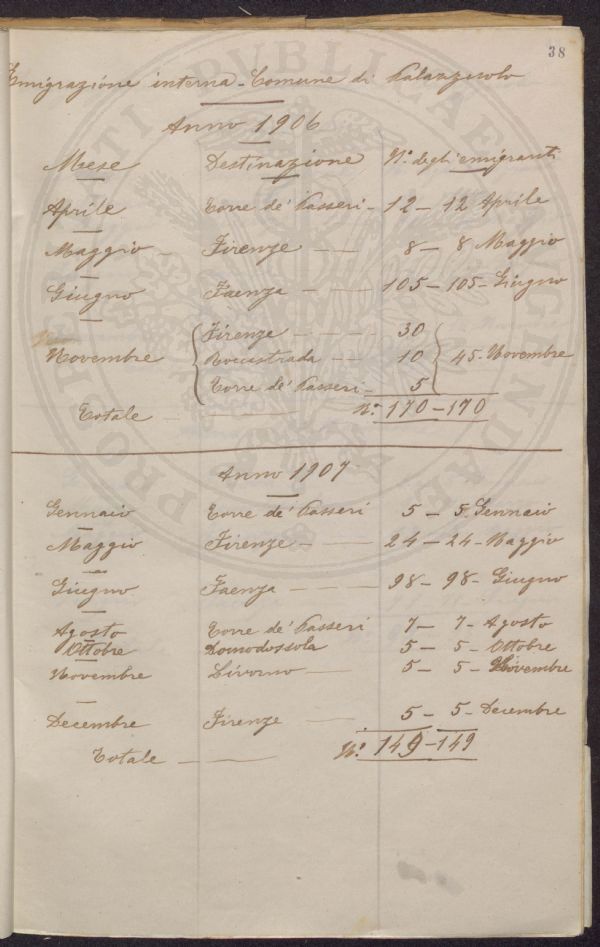 38
Emigrazione interna - Comune di Palazzuolo
Anno 1906
Mese Destinazione N.° degli emigranti
Aprile Torre de' Passeri - 12 - 12 Aprile
Maggio - Firenze - - 8 - 8 Maggio
Giugno Faenza - - - 105 - 105 - Giugno
Firenze - - - - 30
Novembre Roccastrada - - 10 45 - Novembre
Torre de' Passeri - 5
Totale - - N.° 170 - 170
Anno 1907
Gennaio Torre de' Passeri 5 - 5 Gennaio
Maggio Firenze - - 24 - 24 - Maggio
Giugno Faenza - - - 98 - 98 - Giugno
Agosto Torre de' Passeri 7 - 7 - Agosto
Ottobre Domodossola 5 - 5 - Ottobre
Novembre Livorno - - 5 - 5 - Novembre
Decembre Firenze - 5 - 5 - Decembre
Totale - - N.° 149 - 149